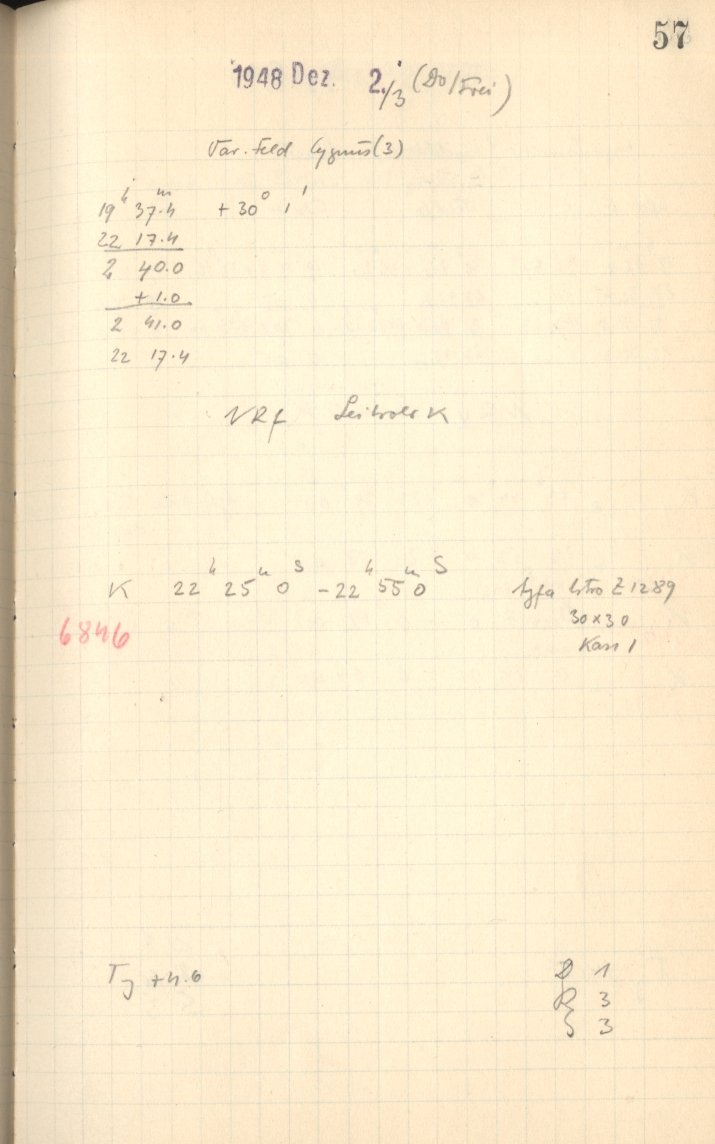 57
1948 Dez. 2./3 (Do/Frei)
Var. Feld Cygnus (3)
19h 37m.4 +30° 1'
22 17.4
2 40.0
+1.0
2 41.0
22 17.4
K 22h 25m 0s - 22h 55m 0s Agfa Astro Z 1289
6846
30x30
Kass 1
+4.6
D 1
R 3
S 3